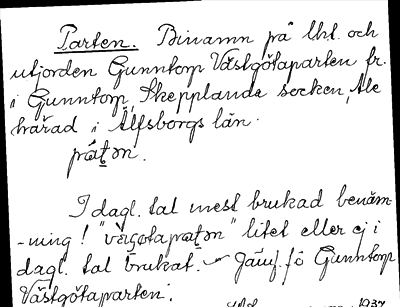 Parten. Binamn på Uht. och
utjorden Gunntorp Västgötaparten fr.
i Gunntorp, Skepplanda socken, Ale
härad i Älfsborgs län.
pat̲ən.
I dagl. tal mest brukad benäm-
-ning! "väsgötapat̲ən" litet eller ej i
dagl. tal brukat. Jämf. fö Gunntorp
Västgötaparten.
1937